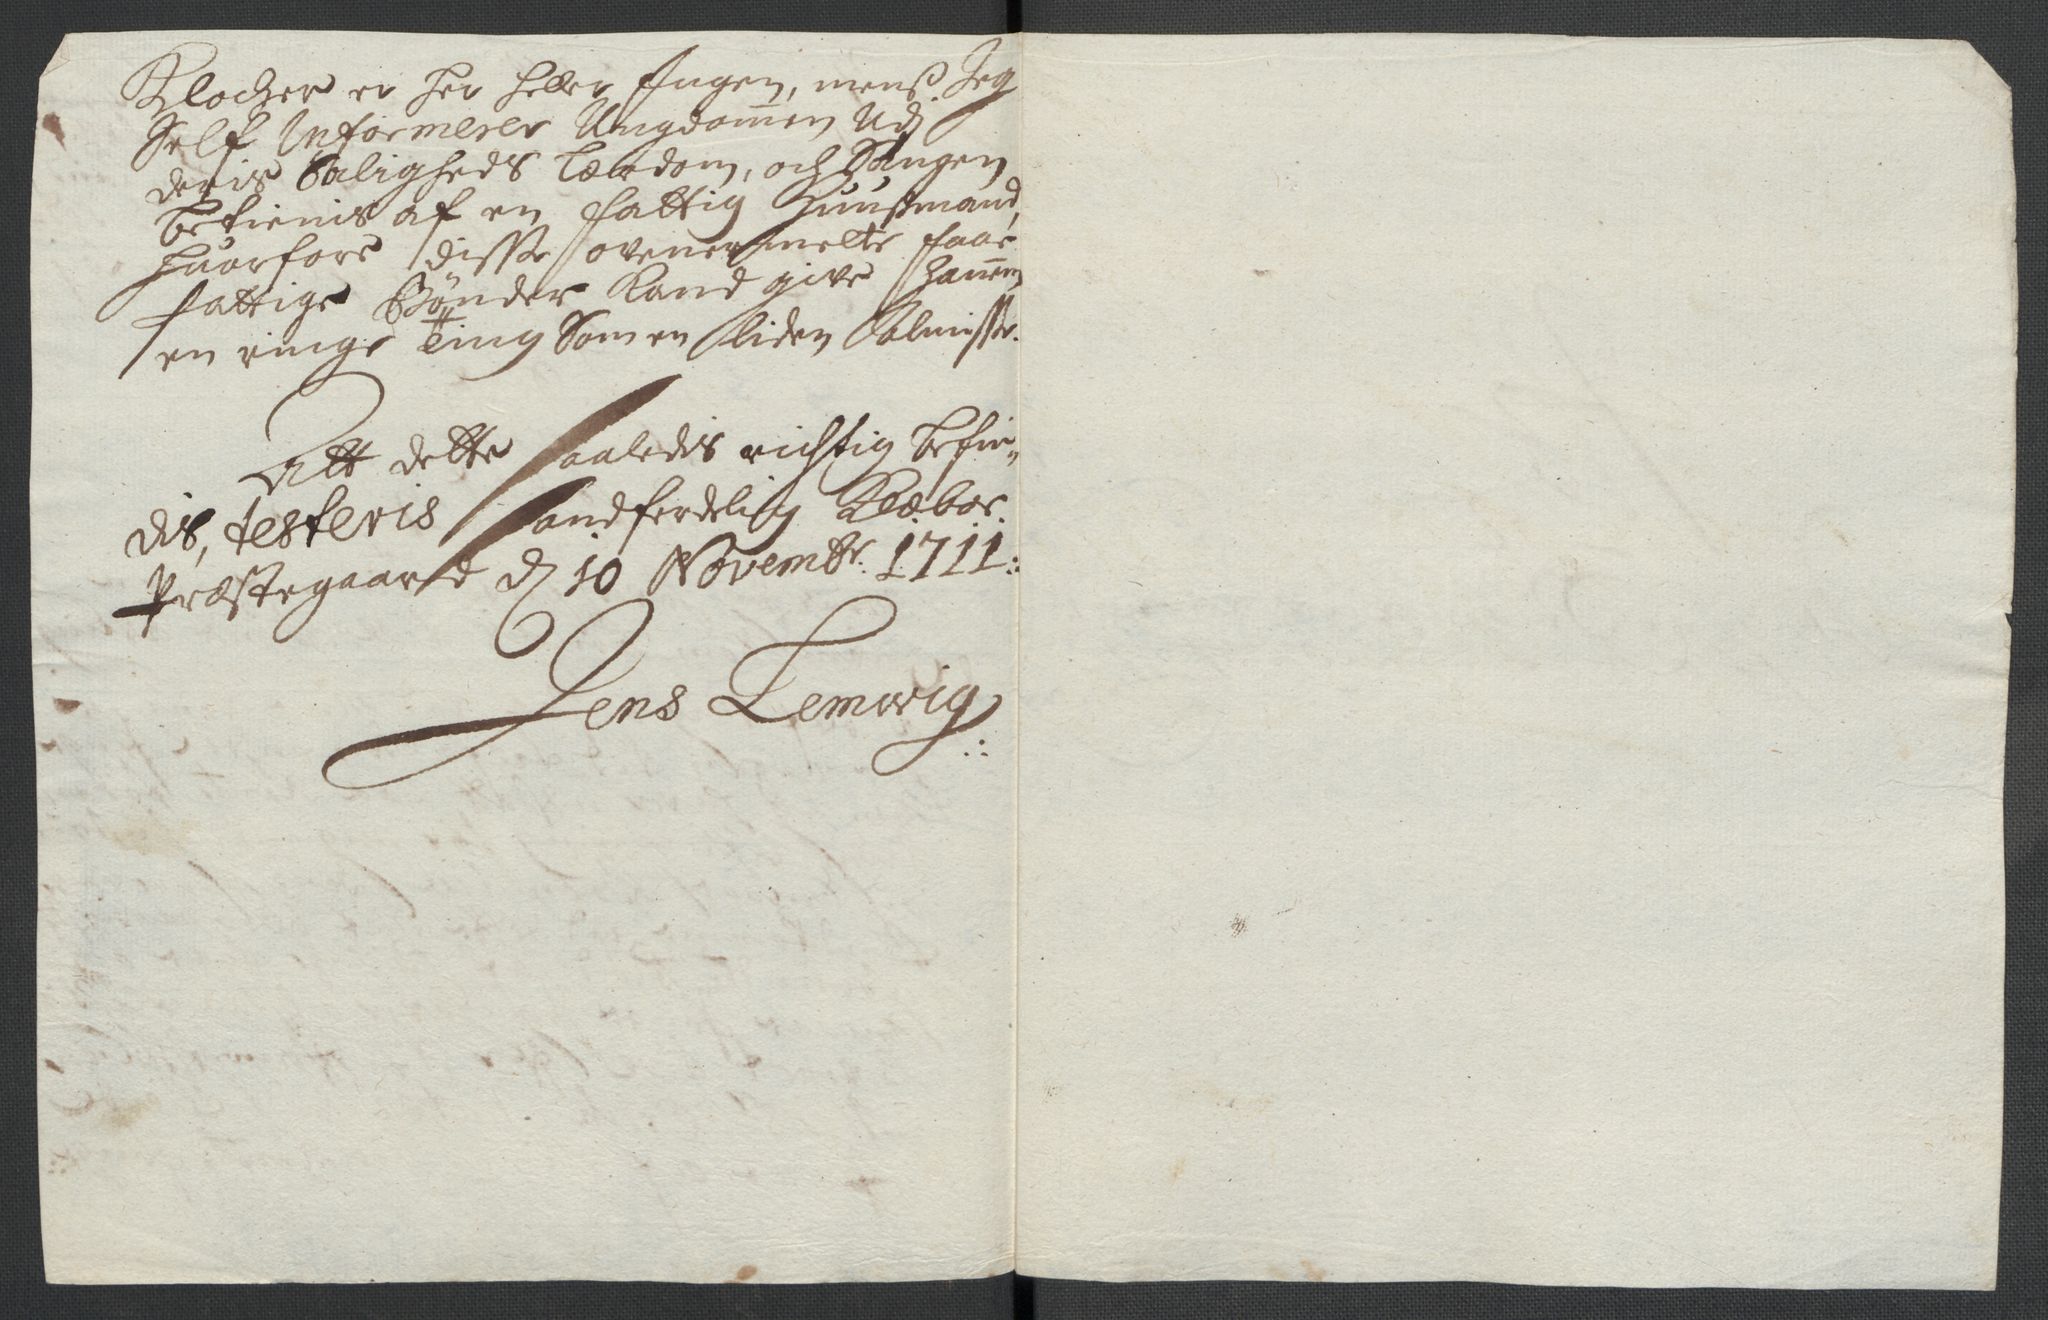 Klocher er her heller Ingen, menß Jeg
Self Informerer Ungdommen Udj
deris Saligheds Lærdom, och Sangen
betienis af en fattig Huußmand,
huorfore disse ovenermelte faae
fattige Bønder Kand give hannem
en ringe Ting Som en liden Almisse.
Att dette saaledis richtig befin-
dis, testeris sandferdelig Klæboe
Præstegaard d 10 Novembr. 1711:
Jens Lemwig